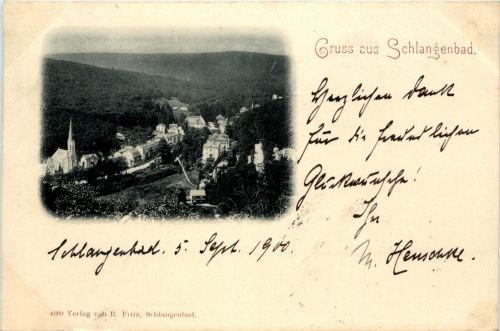 Gruss aus Schlangenbad.
Herzlichen Dank
für die freundlichen
Glückwünsche!
Ihr
M. Henschke.
Schlangenbad. 5. Sept. 1900
4289 Verlag von R. Fritz, Schlangenbad.